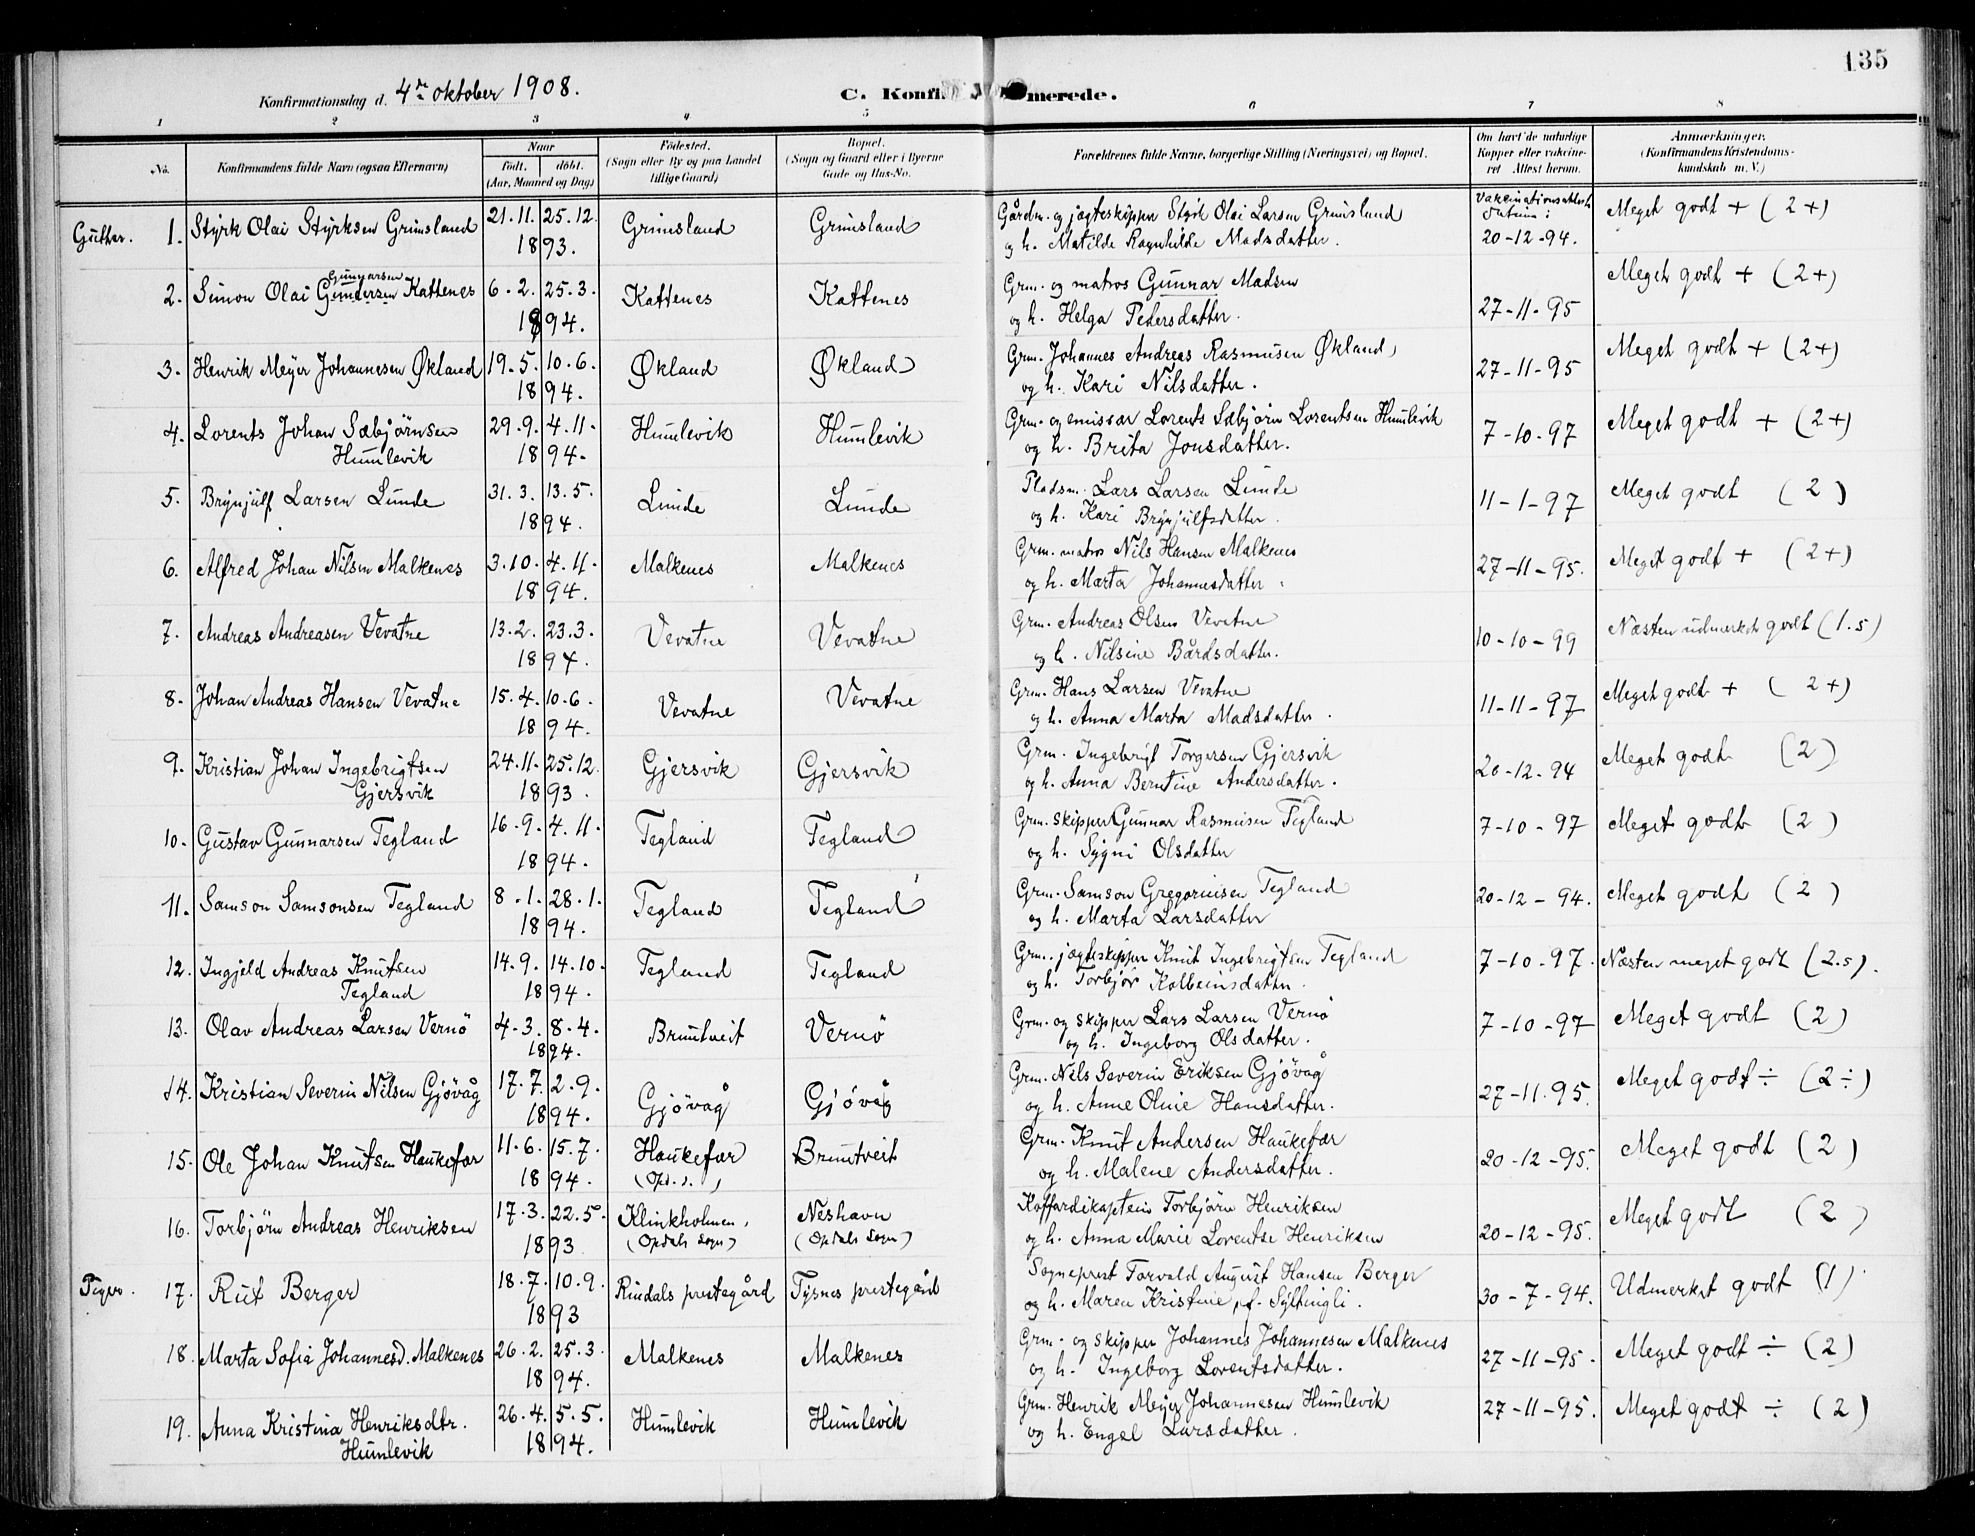 135
Konfirmationsdag d. 4de oktober 1908. C. Konfirmerede.
1 2 3 4 5 6 7 8
No. Konfirmandens fulde Navn (ogsaa Efternavn) Naar født. døbt. (Aar, Maaned og Dag) Fødested. (Sogn eller By og paa Landet tillige Gaard) Bopæl. (Sogn og Gaard eller i Byerne Gade og Hus-No. Forældrenes fulde Navne, borgerlige Stilling (Næringsvei) og Bopæl. Om havt de naturlige Kopper eller vakcineret Attest herom. Anmærkninger. (Konfirmandens Kristendomskundskab m. V.)
Gutter. 1. Styrk Olai Styrksen Grimsland 21.11. 25.12. Grimsland Grimsland Gårdm. og jægteskipper Styrk Olai Larsen Grimsland Vakcinationsattest datum: Meget godt + (2+)
1893. og h. Matilde Ragnhilde Madsdatter. 20-12-94.
2. Simon Olai Gundersen Gunnarsen Kattenes 6.2. 25.3. Kattenes Kattenes Grm. og matros Gunnar Madsen Meget godt + (2+)
1894. og h. Helga Pedersdatter. 27-11-95
3. Henrik Meyer Johannesen Økland 19.5. 10.6. Økland Økland Grm. Johannes Andreas Rasmusen Økland Meget godt + (2+)
1894. og h. Kari Nilsdatter. 27-11-95
4. Lorents Johan Sæbjørnsen 29.9. 4.11. Humlevik Humlevik Grm. og emissær Lorents Sæbjørn Lorentsen Humlevik 7-10-97 Meget godt + (2+)
Humlevik 1894. og h. Brita Jonsdatter.
5. Brynjulf Larsen Lunde 31.3. 13.5. Lunde Lunde Pladsm. Lars Larsen Lunde 11-1-97 Meget godt (2)
1894. og h. Kari Brynjulfsdatter.
6. Alfred Johan Nilsen Malkenes 3.10. 4.11. Malkenes Malkenes Grm. matros Nils Hansen Malkenes 27-11-95. Meget godt + (2+)
1894. og h. Marta Johannesdatter.
7. Andreas Andreasen Vevatne 13.2. 23.3. Vevatne Vevatne Grm. Andreas Olsen Vevatne 10-10-99 Næsten udmerket godt (1.5)
1894. og h. Nilsine Bårdsdatter.
8. Johan Andreas Hansen Vevatne 15.4. 10.6. Vevatne Vevatne Grm. Hans Larsen Vevatne 11-11-97 Meget godt + (2+)
1894. og h. Anna Marta Madsdatter.
9. Kristian Johan Ingebrigtsen 24.11. 25.12. Gjersvik Gjersvik Grm. Ingebrigt Torgersen Gjersvik 20-12-94 Meget godt (2)
Gjersvik 1893. og h. Anna Berntine Andersdatter.
10. Gustav Gunnarsen Tegland 16.9. 4.11. Tegland Tegland Grm. skipper Gunnar Rasmusen Tegland 7-10-97 Meget godt (2)
1894. og h. Sygni Olsdatter
11. Samson Samsonsen Tegland 8.1. 28.1. Tegland Tegland Grm. Samson Gregoriusen Tegland 20-12-94. Meget godt (2)
1894. og h. Marta Larsdatter
12. Ingjeld Andreas Knutsen 14.9. 14.10. Tegland Tegland Grm. jægteskipper Knut Ingebrigtsen Tegland 7-10-97. Næsten meget godt (2.5).
Tegland 1894. og h. Torbjør Kolbeinsdatter.
13. Olav Andreas Larsen Vernö 4.3. 8.4. Bruntveit Vernö Grm. og skipper Lars Larsen Vernö 7-10-97 Meget godt (2)
1894. og h. Ingeborg Olsdatter.
14. Kristian Severin Nilsen Gjövåg 17.7. 2.9. Gjövåg Gjövåg Grm. Nils Severin Eriksen Gjövåg 27-11.95. Meget godt ÷ (2÷)
1894. og h. Anne Oline Hansdatter.
15. Ole Johan Knutsen Haukefær 11.6. 15.7. Haukefær Bruntveit Grm. Knut Andersen Haukefær 20-12-95. Meget godt (2)
1894. (Opd. s.) og h. Malene Andersdatter.
16. Torbjörn Andreas Henriksen 17.3. 22.5. Klinkholmen, Neshavn Koffardikaptein Torbjörn Henriksen 20-12-95. Meget godt (2)
1893 (Opdals sogn) (Opdals sogn) og h. Anna Marie Lorentse Henriksen
Piger. 17. Rut Berger 18.7. 10.9. Rindals prestegård Tysnes prestegård Sogneprest Torvald August Hansen Berger 30-7-94. Udmerket godt (1)
1893 og h. Maren Kristine, f.
18. Marta Sofia Johannesd. Malkenes 26.2. 25.3. Malkenes Malkenes Grm. og skipper Johannes Johannesen Malkenes 27-11-95. Meget godt ÷ (2)
1894. og h. Ingeborg Lorentsdatter.
19. Anna Kristina Henriksdtr. 26.4. 5.5. Humlevik Humlevik Grm. Henrik Meyer Johannesen Humlevik 27-11-95. Meget godt ÷ (2)
Humlevik 1894. og h. Engel Larsdatter.